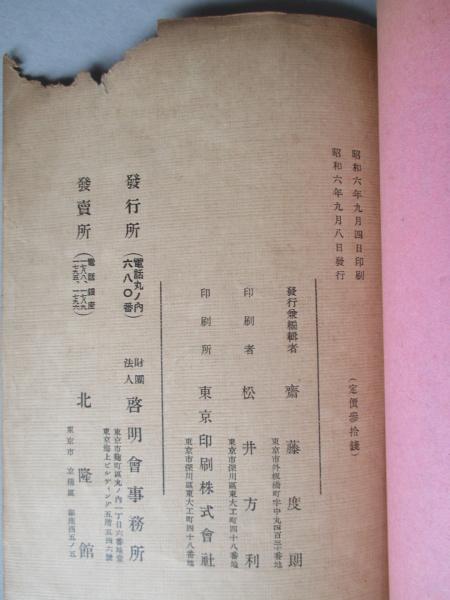 昭和六年九月四日印刷
昭和六年九月八日發行
(定價參拾錢)
發行兼編輯者 齋藤度朗
東京市外板橋町字中丸四百三十番地
印刷者 松井方利
東京市深川區東大工町四十八番地
印刷所 東京印刷株式會社
東京市深川區東大工町四十八番地
發行所 財團法人 啓明會事務所
(電話丸ノ內六八〇番)
東京市麴町區丸ノ內一丁目六番地壹
東京海上ビルディング五階五四六號
發賣所 北隆館
東京市京橋區銀座西五ノ五